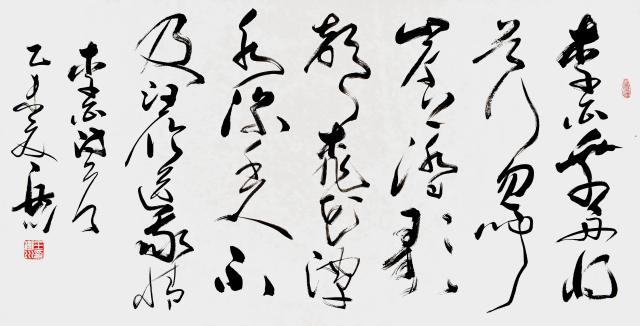 李白乘舟将
欲行忽闻
岸上踏歌
声桃花潭
水深千尺不
及汪伦送我情
李白诗
乙未夏